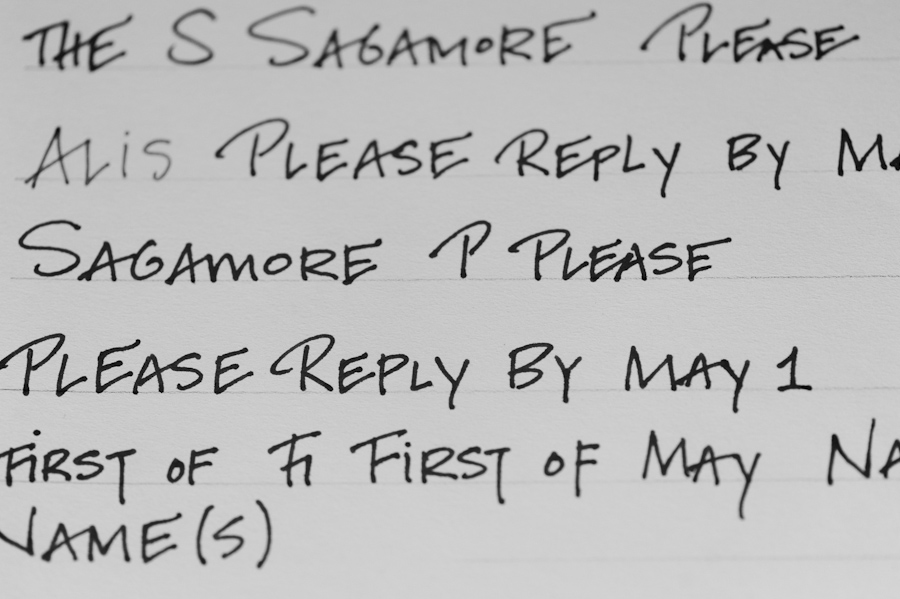 THE S SAGAMORE PLEASE
ALiS PLEASE REPLY BY MA
SAGAMORE P PLEASE
PLEASE REPLY BY MAY 1
FiRST OF Fi FiRST OF MAY NA
NAME(S)